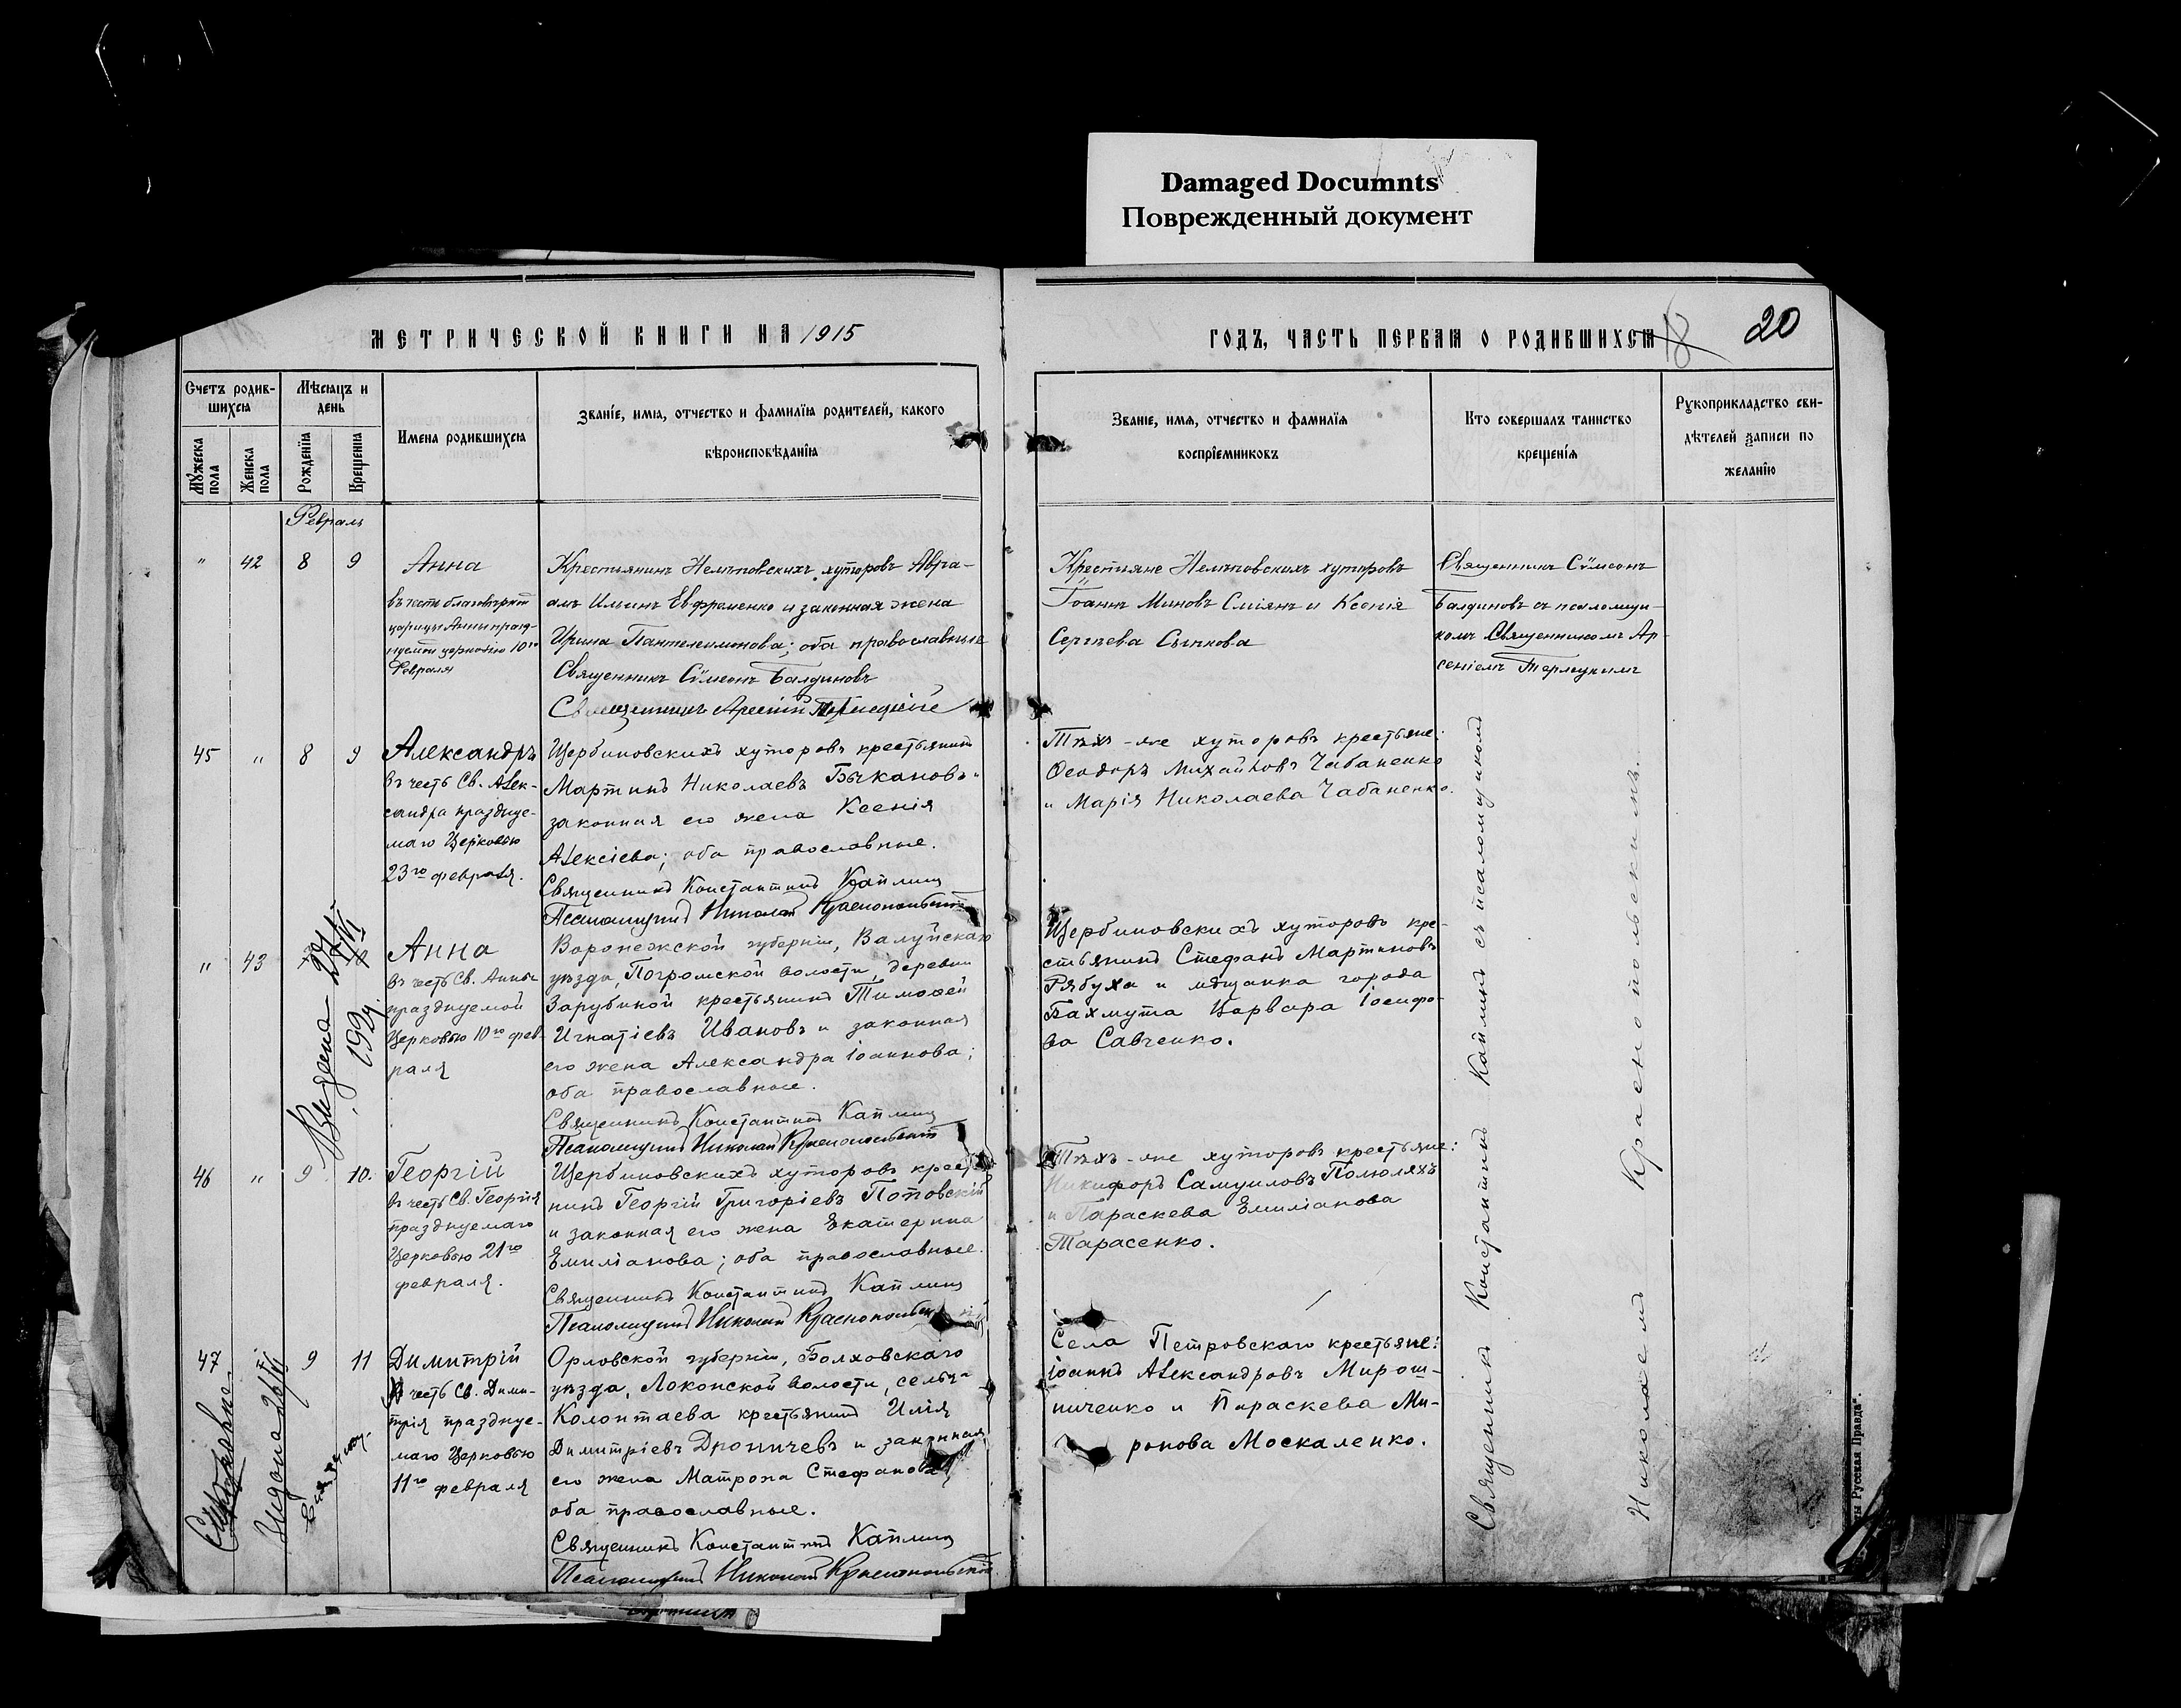 Damaged Documnts
Поврежденный документ
МЕТРИЧЕСКОЙ КНИГИ НА 1915
ГОДЪ, ЧАСТЬ ПЕРВАЯ О РОДИВШИХСЯ
18
20
Счетъ родив-
шихся
Мужеска пола
Женска пола
Мѣсяцъ и
день
Рожденїя
Крещенїя
Имена родившихся
Званїе, имя, отчество и фамилїя родителей, какого
вѣроисповѣданїя
Званїе, имя, отчество и фамилїя
воспрїемниковъ
Кто совершалъ таинство
крещенїя
Рукоприкладство сви-
дѣтелей записи по
желанїю
Февраль
" 42 8 9
Анна
въ честь благовѣрной
царицы Анны празд-
нуемой церковію 10го
Февраля
Крестьянинъ Нелѣповскихъ хуторовъ Авра-
амъ Ильинъ Евфременко и законная жена
Ирина Пантелеимонова; оба православные
Священникъ Сѵмеонъ Балдиновъ
Священникъ Арсеній
Крестьяне Нелѣповскихъ хуторовъ
Іоаннъ Миновъ Сміянъ и Ксенія
Сергѣева Сычкова
Священникъ Сѵмеонъ
Балдиновъ съ псаломщи-
комъ Священникомъ Ар-
сеніемъ Терлецкимъ
45 " 8 9
Александръ
въ честь Св. Алек-
сандра праздnуе-
маго Церковью
23го февраля.
Щербиновскихъ хуторовъ крестьянинъ
Мартинъ Николаевъ Бычкановъ и
законная его жена Ксенія
Алексіева; оба православные.
Священникъ Константинъ Каплинъ
Псаломщикъ Николай Краснопольскій
Тѣхъ-же хуторовъ крестьяне:
Ѳеодоръ Михайловъ Чабаненко
и Марія Николаева Чабаненко.
" 43
Анна
въ честь Св. Анны
празднуемой
Церковью 10го фев-
раля
Воронежской губерніи, Валуйскаго
уѣзда, Погромской волости, деревни
Зарубиной крестьянинъ Тимоѳей
Игнатіевъ Ивановъ и законная
его жена Александра Іоаннова;
оба православные.
Священникъ Константинъ Каплинъ
Псаломщикъ Николай Краснопольскій
Щербиновскихъ хуторовъ кре-
стьянинъ Стефанъ Мартиновъ
Рябуха и мѣщанка города
Бахмута Варвара Іосифо-
ва Савченко.
Видена
192
46 " 9 10.
Георгій
въ честь Св. Георгія
празднуемаго
Церковью 21го
февраля.
Щербиновскихъ хуторовъ крестья
нинъ Георгій Григоріевъ Потовскій
и законная его жена Екатерина
Емиліанова; оба православные.
Священникъ Константинъ Каплинъ
Псаломщикъ Николай Краснопольскій
Тѣхъ-же хуторовъ крестьяне:
Никифоръ Самуиловъ Полюляхъ
и Параскева Емиліанова
Тарасенко.
47 9 11
Димитрій
въ честь Св. Дими-
трія празднуе-
маго Церковью
11го февраля
Орловской губерніи, Болховскаго
уѣзда, Локонской волости, сельца
Колонтаева крестьянинъ Илія
Димитріевъ Дроничевъ и законная
его жена Матрона Стефанова
оба православные.
Священникъ Константинъ Каплинъ
Псаломщикъ Николай Краснопольскій
Села Петровскаго крестьяне:
Іоаннъ Александровъ Мирош-
ниченко и Параскева Ми-
ронова Москаленко.
Священникъ Константинъ Каплинъ съ псаломщикомъ
Николаемъ Краснопольскимъ.
Русская Правда".